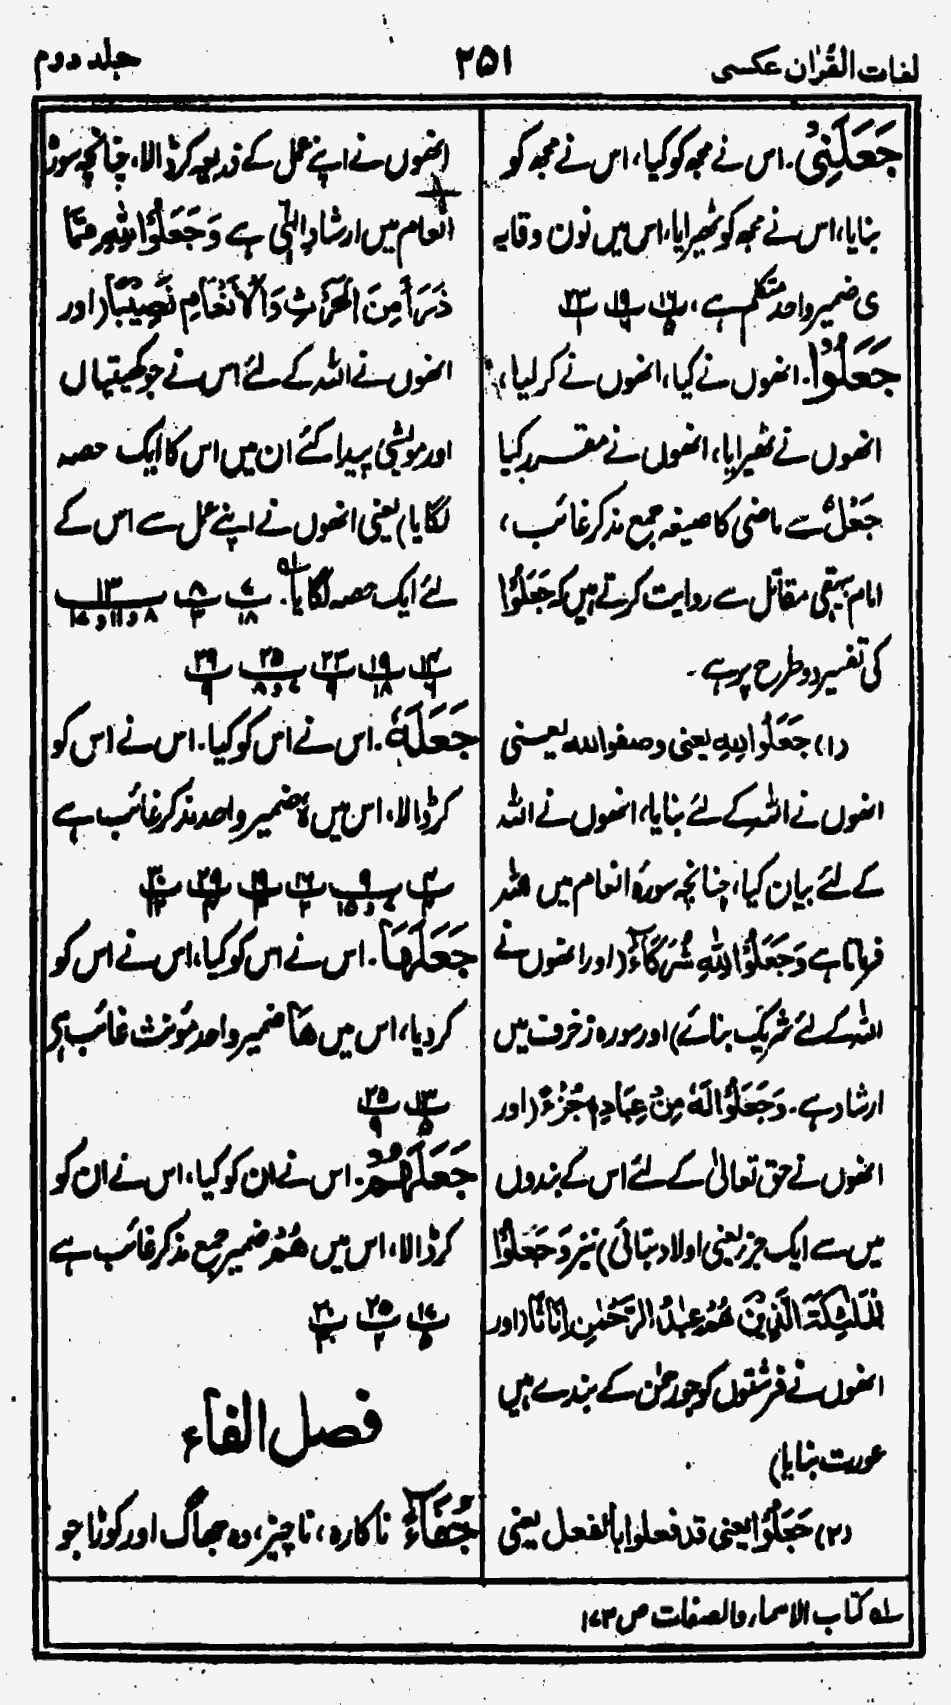 لغات القُرٰان عکسی
۲۵۱
جلد دوم
جَعَلَنِیْ. اس نے مجھ کو کیا، اس نے مجھ کو
بنایا، اس نے مجھ کو ٹھیرایا، اس میں نون وقایہ
ی ضمیر واحد متکلم ہے، ۱۶ ۵ ۱۹ ۶ ۲۳ ۱
جَعَلُوْا. انھوں نے کیا، انھوں نے کر لیا،
انھوں نے ٹھیرایا، انھوں نے مقرر کیا
جَعْلٌ سے ماضی کا صیغہ جمع مذکر غائب،
امام بیہقی مقاتل سے روایت کرتے ہیں کہ جَعَلُوْا
کی تفسیر دو طرح پر ہے۔
(۱) جَعَلُوا لِلّٰهِ یعنی وصفوا للہ یعنی
انھوں نے اللہ کے لئے بنایا، انھوں نے اللہ
کے لئے بیان کیا، چنانچہ سورۂ انعام میں اللہ
فرماتا ہے وَجَعَلُوْا لِلّٰهِ شُرَكَآءَ (اور انھوں نے
اللہ کے لئے شریک بنائے) اور سورہ زخرف میں
ارشاد ہے. وَجَعَلُوْا لَهٗ مِنْ عِبَادِهٖ جُزْءً (اور
انھوں نے حق تعالیٰ کے لئے اس کے بندوں
میں سے ایک جزر یعنی اولاد بتائی) نیز وَجَعَلُوْا
الْمَلٰٓئِكَةَ الَّذِيْنَ هُمْ عِبٰدُ الرَّحْمٰنِ اِنَاثًا (اور
انھوں نے فرشتوں کو جو رحمٰن کے بندے ہیں
عورت بنایا)
(۲) جَعَلُوْا یعنی قد فعلوا بالفعل یعنی
انھوں نے اپنے عمل کے ذریعہ کر ڈالا، چنانچہ سورۂ
انعام میں ارشادِ الٰہی ہے وَجَعَلُوْا لِلّٰهِ مِمَّا
ذَرَاَ مِنَ الْحَرْثِ وَالْاَنْعَامِ نَصِيْبًا (اور
انھوں نے اللہ کے لئے اس نے جو کھیتیاں
اور مویشی پیدا کئے ان میں اس کا ایک حصہ
لگایا) یعنی انھوں نے اپنے عمل سے اس کے
لئے ایک حصہ لگایا. ؎۱ ۷ ۱۸ ۸ ۳ ۱۳ ۸ و ۱۱ و ۱۷
۱۴ ۶ ۱۹ ۱۸ ۲۳ ۹ ۲۵ ۷ و ۸ ۲۹ ۹
جَعَلَهٗ. اس نے اس کو کیا. اس نے اس کو
کر ڈالا، اس میں ہٗ ضمیر واحد مذکر غائب ہے
جَعَلَهَا. اس نے اس کو کیا، اس نے اس کو
کر دیا، اس میں هَا ضمیر واحد مؤنث غائب ہے
۱۳ ۵ ۲۵ ۹
جَعَلَهُمْ. اس نے ان کو کیا، اس نے ان کو
کر ڈالا، اس میں هُمْ ضمیر جمع مذکر غائب ہے
۱۷ ۵ ۲۵ ۲ ۳۰
فصل الفاء
جُفَآءً ناکارہ، ناچیز، وہ جھاگ اور کوڑا جو
؎۱ کتاب الاسماء والصفات ص ۱۷۳